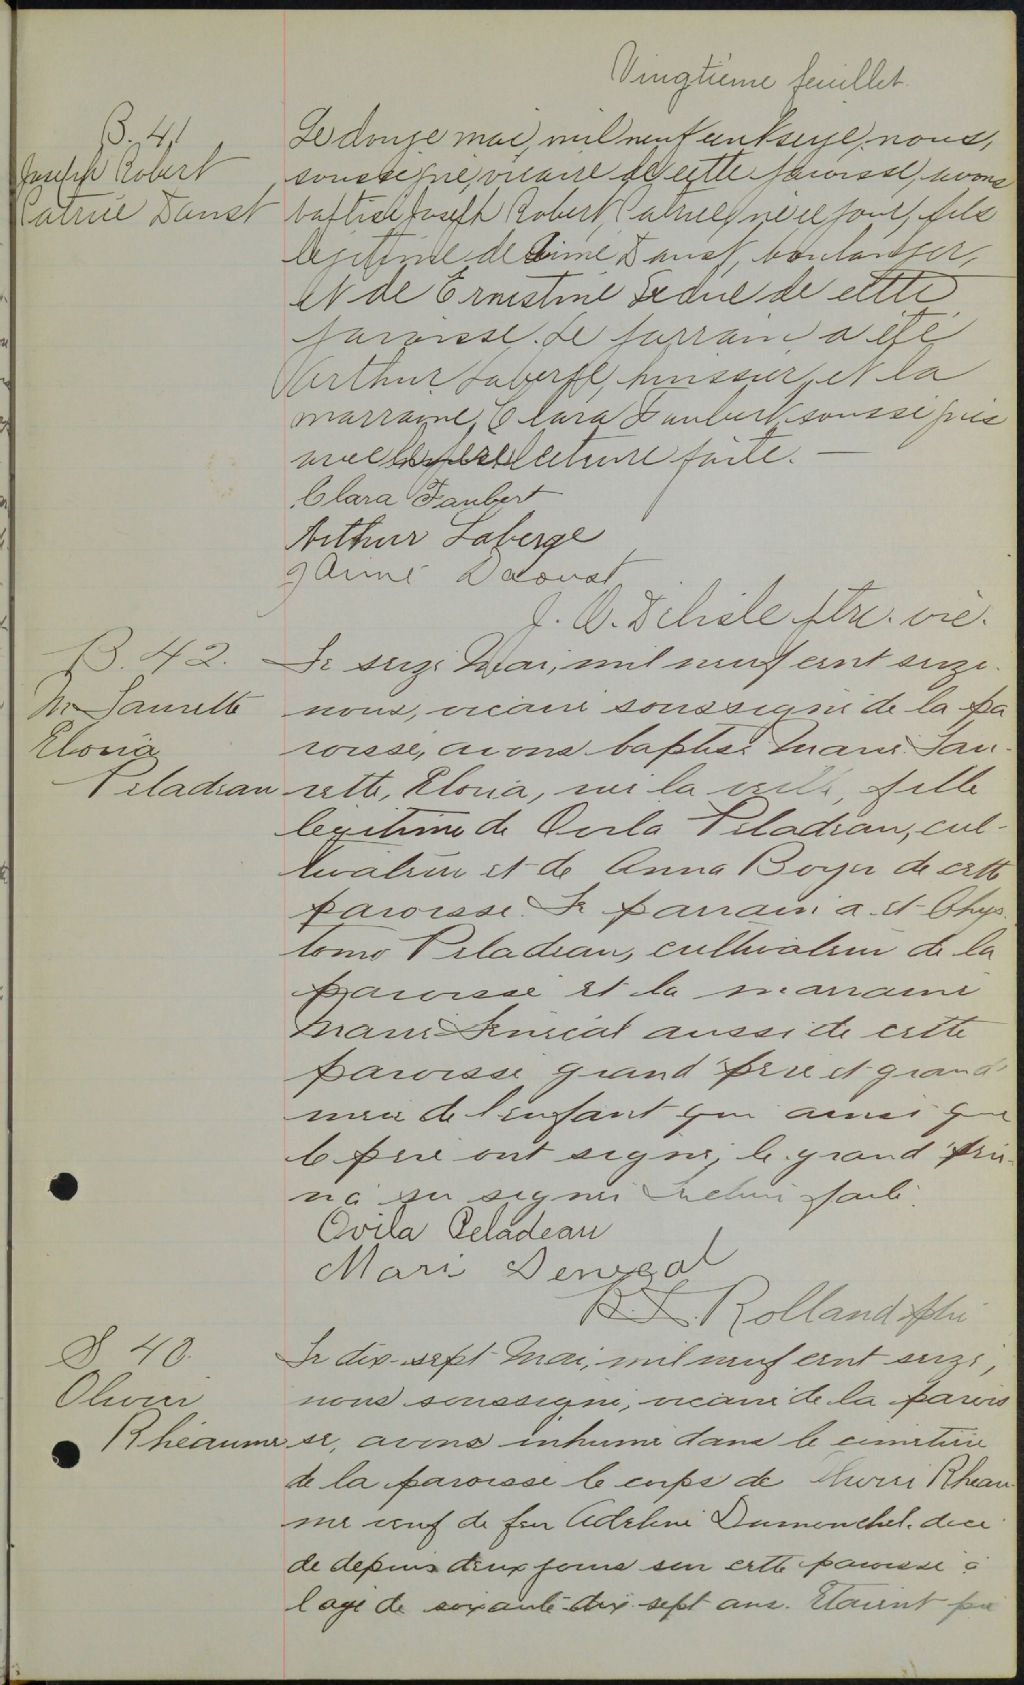 Vingtième feuillet
B. 41
Joseph Robert
Patrice Daust
Le douze mai, mil neuf cent seize, nous,
soussigné, vicaire de cette paroisse, avons
baptisé Joseph Robert, Patrice, né ce jour, fils
légitime de Aimé Daust, boulanger,
et de Ernestine Leduc de cette
paroisse. Le parrain a été
Arthur Laberge, huissier, et la
marraine, Clara Faubert, soussignés
avec le père lecture faite. —
Clara Faubert
Arthur Laberge
J Aimé Daoust
J. O. Delisle ptre. vic.
B. 42.
M. Laurette
Eloria
Peladeau
Le seize Mai, mil neuf cent seize
nous, vicaire soussigné de la pa
roisse, avons baptisé Marie Lau-
rette, Eloria, née la veille, fille
légitime de Ovila Peladeau, cul-
tivateur et de Anna Boyer de cette
paroisse. Le parrain a été Chrys
tomo Peladeau, cultivateur de la
paroisse et la marraine
Marie Sénécal aussi de cette
paroisse grand'père et grand'
mère de l'enfant qui ainsi que
le père ont signé, le grand'père
n'a su signer Lecture faite.
Ovila Peladeau
Mari Senecal
R. L. Rolland ptre
S 40.
Olivier
Rhéaume
Le dix-sept Mai, mil neuf cent seize,
nous soussigné, vicaire de la parois
se, avons inhumé dans le cimetière
de la paroisse le corps de Olivier Rhéau-
me veuf de feu Adeline Dumouchel. décé
dé depuis deux jours sur cette paroisse à
l'age de soixante-dix-sept ans. Etaient pré